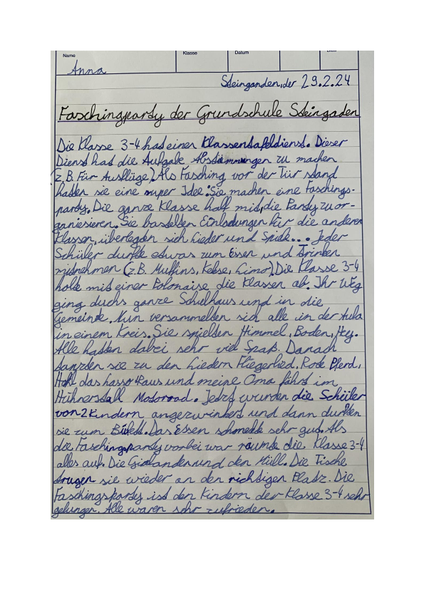 Name
Klasse
Datum
Anna
Steingaden, der 29.2.24
Faschingparty der Grundschule Steingaden
Die Klasse 3-4 hat einen Klassen Dieser
Dienst hat die Aufgabe Abstimmungen zu machen
(z.B. Für Ausflüge). Als Fasching vor der Tür stand
hatten sie eine super Idee: Sie machen eine Faschings-
party. Die ganze Klasse half mit, die Party zu or-
ganiesieren. Sie bastelten Einladungen für die anderen
Klassen, überlegten sich Lieder und Spiele... Jeder
Schüler durfte etwas zum Essen und Trinken
mitnehmen (z.B. Muffins, Kekse, Limo). Die Klasse 3-4
holte mit einer Polonaise die Klassen ab. Ihr Weg
ging durchs ganze Schulhaus und in die
Gemeinde. Nun versammelten sich alle in der Aula
in einem Kreis. Sie spielten Himmel, Boden, Hey.
Alle hatten dabei sehr viel Spaß. Danach
tanzten sie zu den Liedern Fliegerlied, Rote Pferd,
das Haus und meine Oma fährt im
Hühnerstall Motorrad. Jetzt wurden die Schüler
von 2 Kindern und dann durften
sie zum Das Essen schmekte sehr gut. Als
die Faschingsparty vorbei war räumte die Klasse 3-4
alles auf. Die Girlanden und den Müll. Die Tische
trugen sie wieder an den richtigen Platz. Die
Faschingsparty ist den Kindern der Klasse 3-4 sehr
gelungen. Alle waren sehr zufrieden.